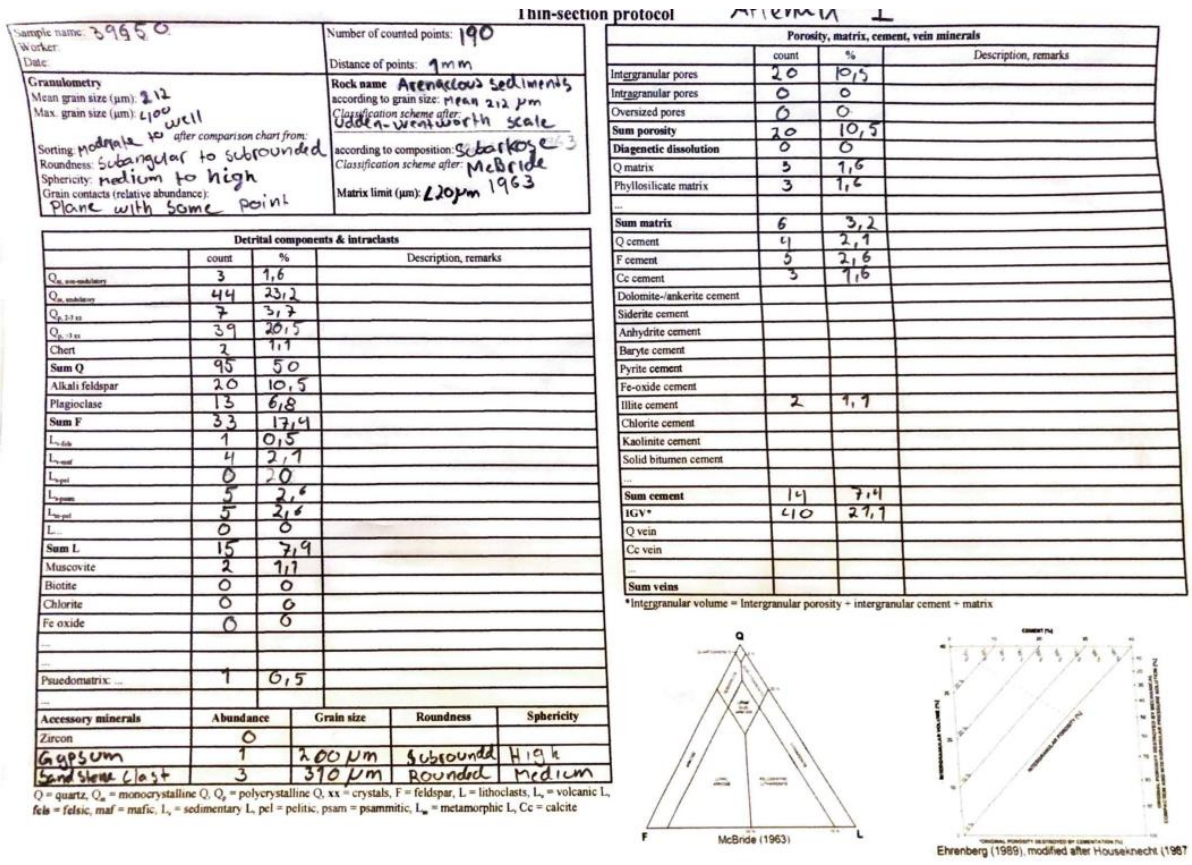 Thin-section protocol
Sample name: 39950
Worker:
Date:
Number of counted points: 190
Distance of points: 1mm
Granulometry
Mean grain size (µm): 212
Max. grain size (µm): 400
Sorting: Modrate to well after comparison chart from:
Roundness: Subangular to subrounded
Sphericity: Medium to high
Grain contacts (relative abundance):
Plane with some point
Rock name Arenaclous sediments
according to grain size: Mean 212 µm
Classification scheme after:
Udden-wentworth scale
according to composition: Subarkose
Classification scheme after: McBride
1963
Matrix limit (µm): <20µm
Detrital components & intraclasts
count % Description, remarks
Qm, non-undulatory 3 1,6
Qm, undulatory 44 23,2
Qp, 2-3 xx 7 3,7
Qp, >3 xx 39 20,5
Chert 2 1,1
Sum Q 95 50
Alkali feldspar 20 10,5
Plagioclase 13 6,8
Sum F 33 17,4
Lv-fels 1 0,5
Lv-maf 4 2,1
Ls-pel 0 0
Ls-psam 5 2,6
Lm-pel 5 2,6
L... 0 0
Sum L 15 7,9
Muscovite 2 1,1
Biotite 0 0
Chlorite 0 0
Fe oxide 0 0
...
...
Psuedomatrix: ... 1 0,5
...
Accessory minerals Abundance Grain size Roundness Sphericity
Zircon 0
Gypsum 1 200 µm Subrounded High
Sandstone clast 3 310 µm Rounded Medium
Q = quartz, Qm = monocrystalline Q, Qp = polycrystalline Q, xx = crystals, F = feldspar, L = lithoclasts, Lv = volcanic L,
fels = felsic, maf = mafic, Ls = sedimentary L, pel = pelitic, psam = psammitic, Lm = metamorphic L, Cc = calcite
Porosity, matrix, cement, vein minerals
count % Description, remarks
Intergranular pores 20 10,5
Intragranular pores 0 0
Oversized pores 0 0
Sum porosity 20 10,5
Diagenetic dissolution 0 0
Q matrix 3 1,6
Phyllosilicate matrix 3 1,6
...
Sum matrix 6 3,2
Q cement 4 2,1
F cement 5 2,6
Cc cement 3 1,6
Dolomite-/ankerite cement
Siderite cement
Anhydrite cement
Baryte cement
Pyrite cement
Fe-oxide cement
Illite cement 2 1,1
Chlorite cement
Kaolinite cement
Solid bitumen cement
...
Sum cement 14 7,4
IGV* 40 21,1
Q vein
Cc vein
...
Sum veins
*Intergranular volume = Intergranular porosity + intergranular cement + matrix
Q
F
L
McBride (1963)
CEMENT [%]
INTERGRANULAR VOLUME [%]
INTERGRANULAR POROSITY [%]
*ORIGINAL POROSITY DESTROYED BY CEMENTATION [%]
Ehrenberg (1989), modified after Houseknecht (1987